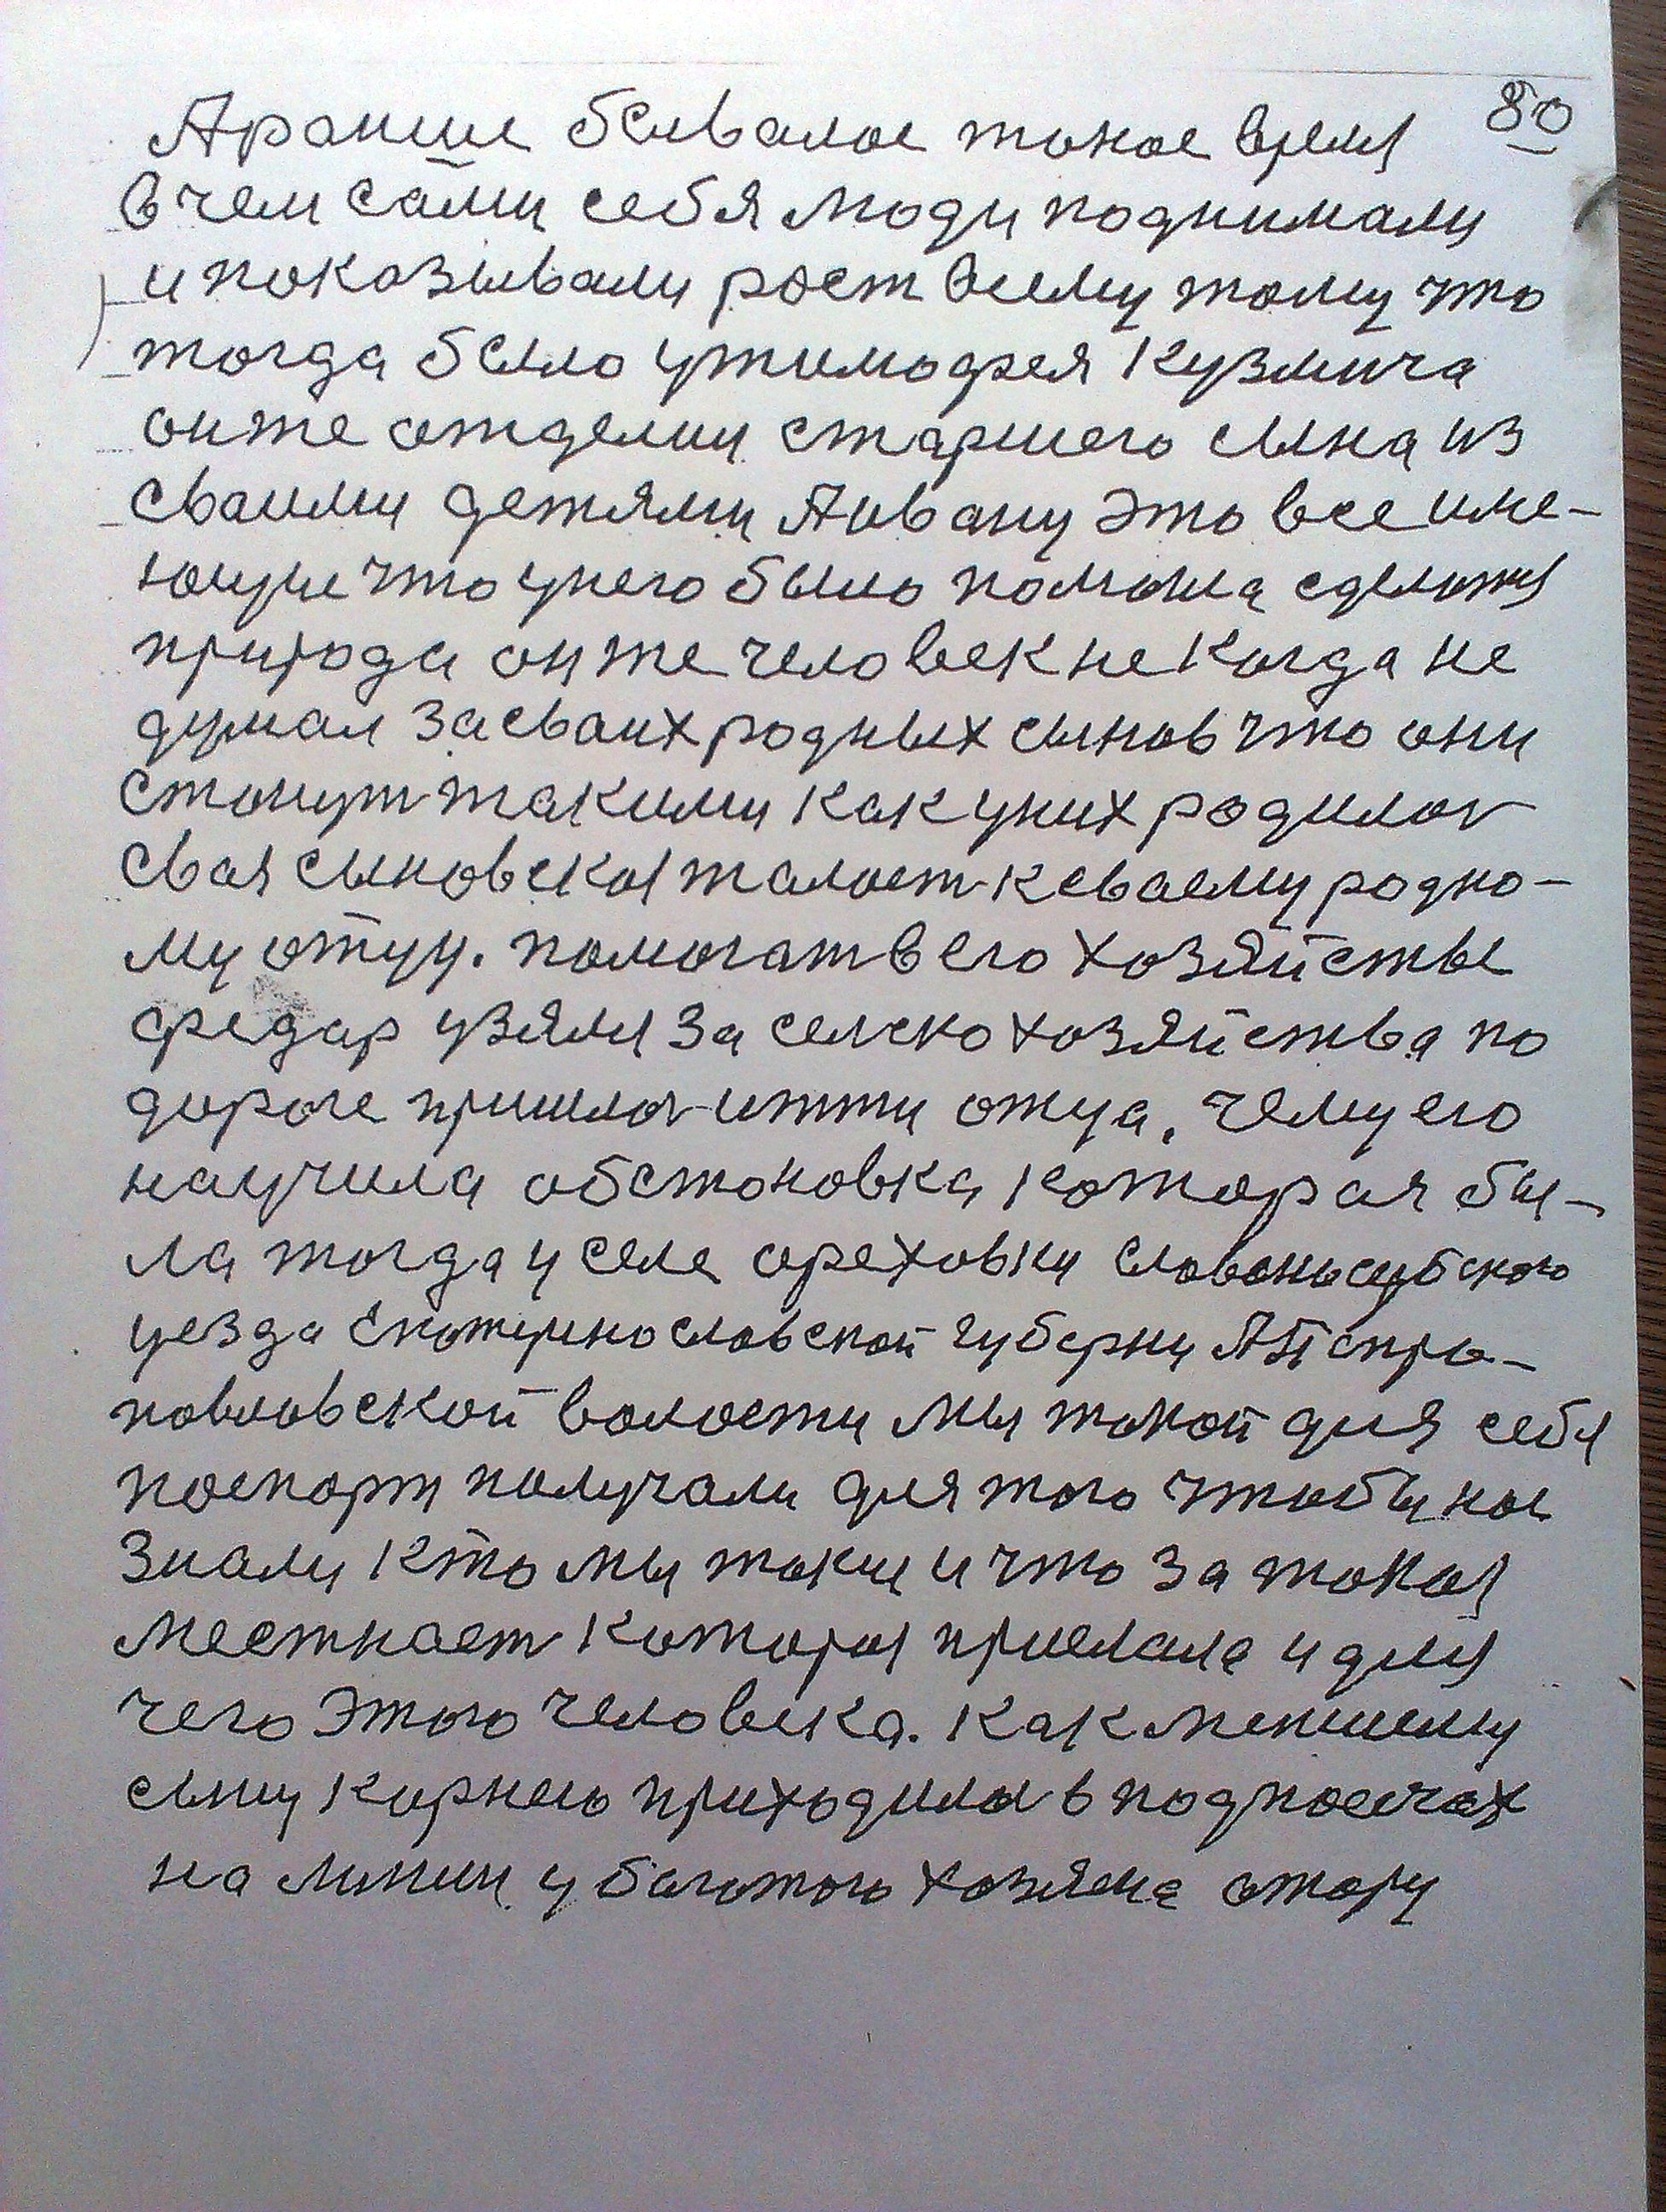 80
Араньше бывалое такое время
в чем сами себя люди поднимали
и показывали рост всему тому что
тогда было утимофея Кузмича
онже отделил старшего сына из
сваими детями Аивану это все име-
ющие что унего было помогла сделать
природа онже человек некогда не
думал засваих родных сынов что они
станут такими как уних родилос
свая сыновская жалост ксваему родно-
му отцу. помогат в его хозяйстве
федар узялся за селско хозяйства по
дороге пришлос итти отца, чему его
научила обстоновка которая бы-
ла тогда у селе ореховки Славяносербского
уезда Екатеринославской губерни АПетро-
повловской волости мы такой для себя
поспорт получали для того чтобы нас
знали кто мы такии и что за такая
местност которая приемала и для
чего этого человека. Как меншему
сыну Корнею приходилос в подпасычах
на линии у багатого хозяена отару